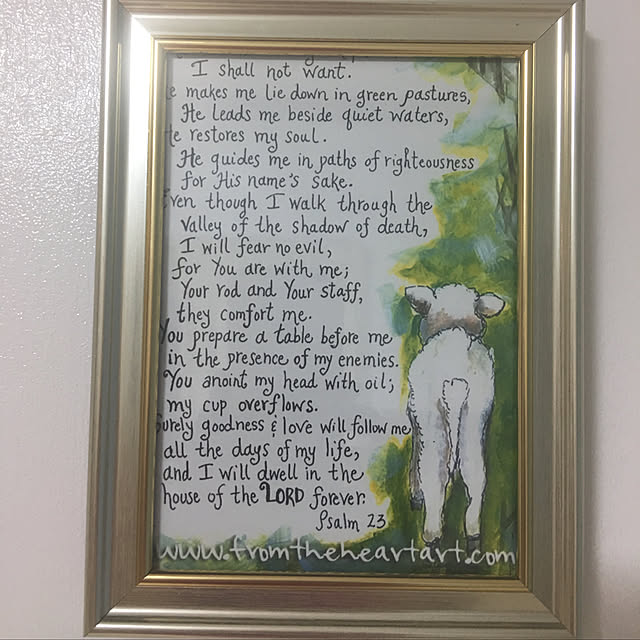 I shall not want.
e makes me lie down in green pastures,
He leads me beside quiet waters,
He restores my soul.
He guides me in paths of righteousness
for His name's sake.
Even though I walk through the
valley of the shadow of death,
I will fear no evil,
for You are with me;
Your rod and Your staff,
they comfort me.
You prepare a table before me
in the presence of my enemies.
You anoint my head with oil;
my cup overflows.
Surely goodness & love will follow me
all the days of my life,
and I will dwell in the
house of the LORD forever.
Psalm 23
www.fromtheheartart.com